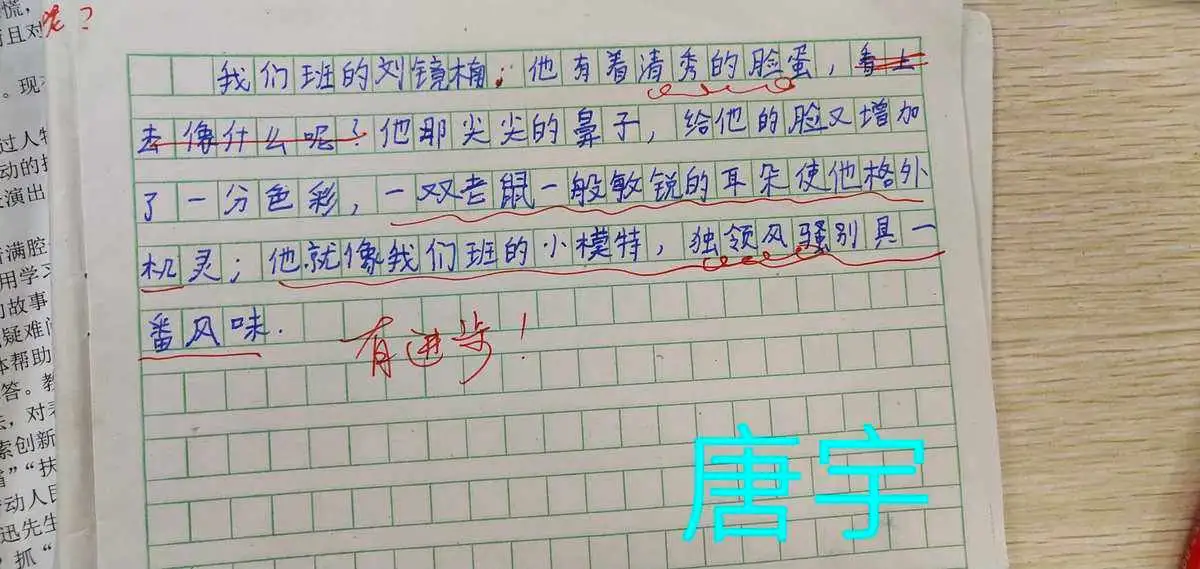 我们班的刘镜楠；他有着清秀的脸蛋，看上
去像什么呢？他那尖尖的鼻子，给他的脸又增加
了一分色彩，一双老鼠一般敏锐的耳朵使他格外
机灵；他就像我们班的小模特，独领风骚别具一
番风味.
有进步！
唐宇
慌，
且对
？
。现
过人
动的
演出
满腔
用学习
故事
疑难问
体帮助
答。教
，对
索创新
”“扶
动人民
迅先生
抓“